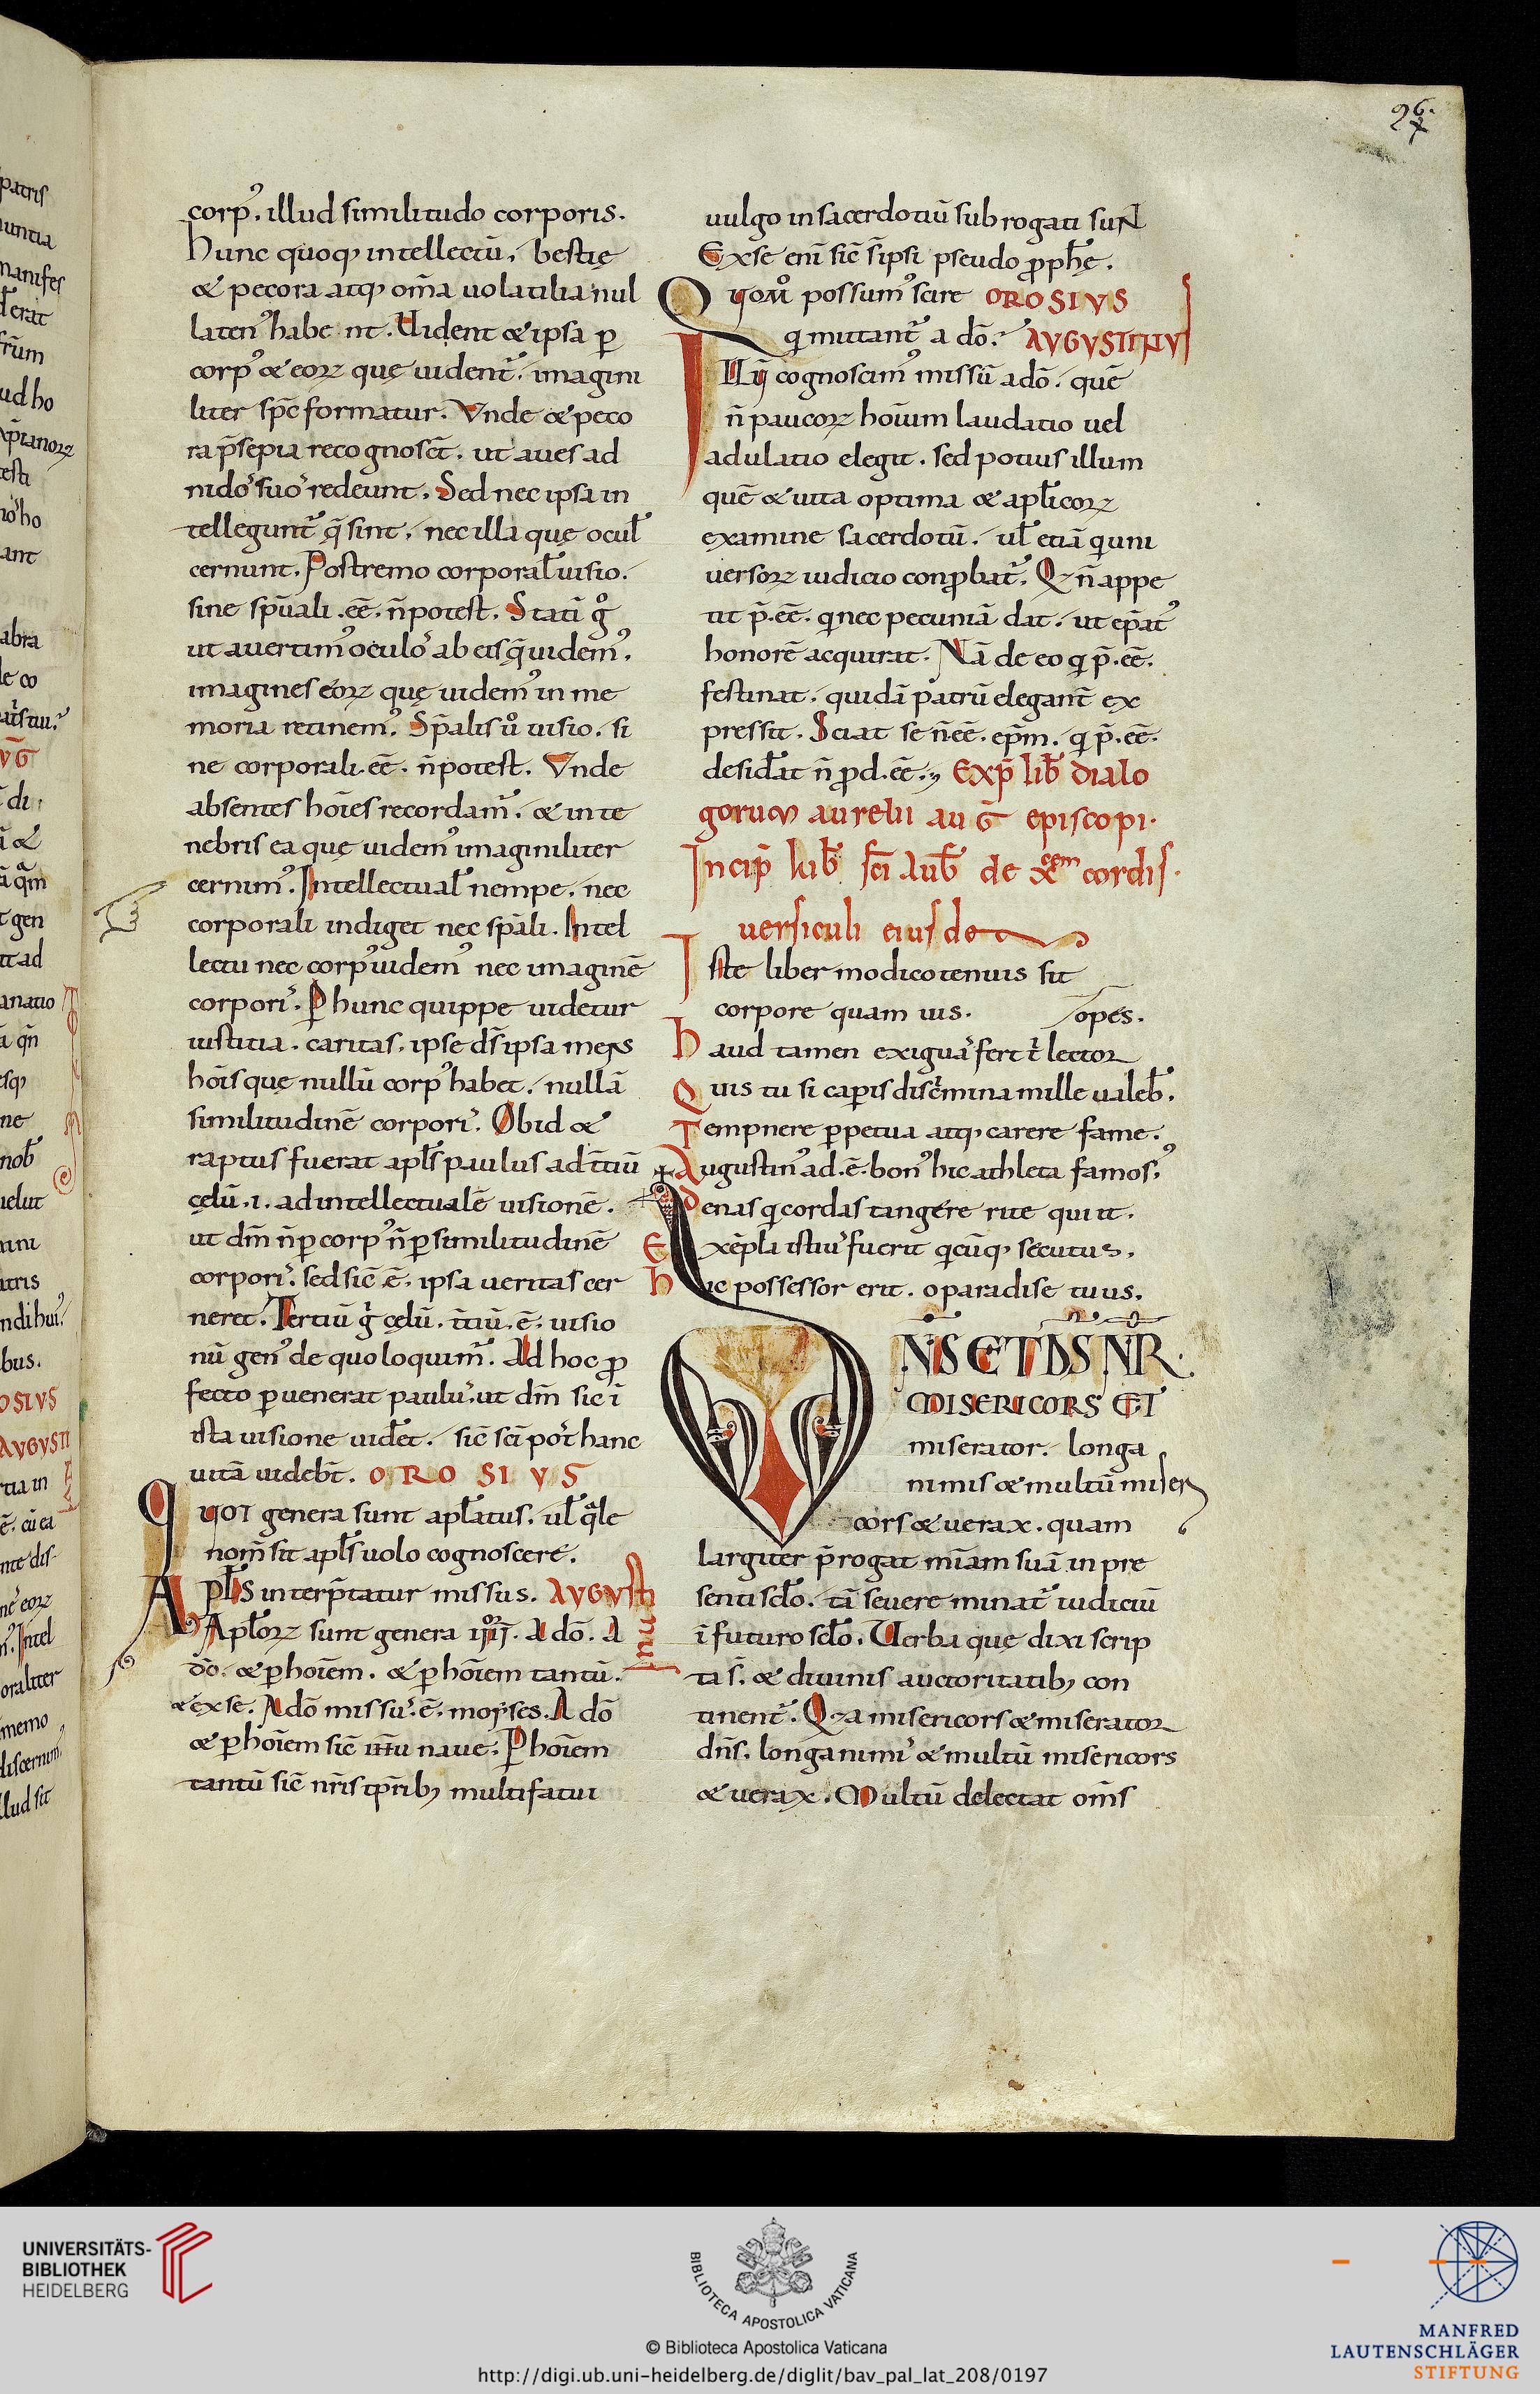 26.
corp᾽. illud similitudo corporis.
Hunc quoq; intellectū, bestię
& pecora atq; om̄a uolatilia nul
laten᾽ habent. Uident & ipsa ꝑ
corp᾽ & eoꝝ quę uident᾽, imagini
liter sp̄c formatur. Vnde & peco
ra p̄sepia recognosct̄, ut aues ad
nido᾽ suo᾽ redeunt. Sed nec ipsa in
tellegunt᾽ q̄ sint, nec illa quę ocul̄
cernunt. Postremo corporal̄ uisio.
sine sp̄uali .eē. n̄ potest. Statī g̊
ut auertim᾽ oculo᾽ ab eis q̄ uidem᾽,
imagines eoꝝ quę uidem᾽ in me
moria retinem᾽. Sp̄alis ů uisio. si
ne corporali .eē. n̄ potest. Vnde
absentes hoīes recordam᾽. & in te
nebris ea quę uidem᾽ imaginiliter
cernim᾽. Intellectual̄ nempe. nec
corporali indiget nec sp̄ali. Intel
lectu nec corp᾽ uidem᾽ nec imaginē
corpori᾽. Ꝑ hunc quippe uidetur
iustitia. caritas. ipse d̄s ipsa mens
hoīs quę nullū corp᾽ habet. nullā
similitudinē corpori᾽. Ob id &
raptus fuerat apl̄s paulus ad t̄tiū
cęlū .i. ad intellectualē uisionē.
ut dm̄ n̄ ꝑ corp᾽ n̄ ꝑ similitudinē
corpori᾽. sed sic̄ .ē. ipsa ueritas cer
neret. Tertiū g̊ cęlū. t̄tiū .ē. uisio
nū gen᾽ de quo loquim᾽. Ad hoc ꝓ
fecto ꝑuenerat paulu᾽. ut dm̄ sic ī
ista uisione uidet̄. sic̄ sc̄i po᾽t hanc
uitā uidebt̄. OROSIVS
QVOT genera sunt apl̄atus. ul̄ q̄le
nom̄ sit apl̄s uolo cognoscere.
APL̄S interp̄tatur missus. AVGVSTI
NVS
Apl̄oꝝ sunt genera IIII. A dō. A
dō. & ꝑ hoīem. & ꝑ hoīem tantū.
& ex se. A dō missu᾽ .ē. moẏses. A dō
& ꝑ hoīem sic̄ iħu naue. Ꝑ hoīem
tantū sic̄ nr̄is tp̄rib; multi fatui
uulgo in sacerdotiū subrogati suN̄
Ex se enī sic̄ s̄ ipsi pseudo ꝓph̄ę.
QVOM̊ possum᾽ scire OROSIVS
qi mittant᾽ a dō? AVGVSTINVS
ILLŪ cognoscim᾽ missū a dō. quē
n̄ paucoꝝ hoīum laudatio uel
adulatio elegit. sed potius illum
quē & uita optima & apl̄icoꝝ
examine sacerdotū. ul̄ etiā qi uni
uersoꝝ iudicio conꝓbat᾽. Qi n̄ appe
tit p̄.eē. qi nec pecuniā dat. ut ep̄at᾽
honorē acquirat. Nā de eo qi p̄.eē.
festinat. quidā patrū elegant̄ ex
pressit. Sciat se n̄ eē. ep̄m. qi p̄.eē.
desid̄at n̄ ꝓd.eē. Exp̄ lib̄ dialo
gorum aurelii auḡ episcopi.
Incip̄ lib̄ sc̄i aub̄ de &#967;eem cordis.
uersiculi eiusdē
Iste liber modico tenuis sit
corpore quam uis. opes.
Haud tamen exigua᾽ fert t̄ lector
Quis tu si capis discrimina mille ualeb̄.
Tempnere ꝑpetua atq; carere fame.
Augustin᾽ ad .ē. bon᾽ hic athleta famos᾽,
Denas qi cordas tangere rite quiit.
Exēpla istiu᾽ fuerit qicūq; secutus,
Hic possessor erit. o paradise tuus.
DNS ET DS NR.
MISERICORS ET
miserator. longa
nimis & multū miseri
cors & uerax. quam
largiter p̄rogat mīam suā in pre
senti scl̄o. tā seuere minat᾽ iudiciū
ī futuro scl̄o. Uerba quę dixi scrip
ta s̄. & diuinis auctoritatib; con
tinent᾽. Qia misericors & miserator
dn̄s. longanimi᾽ & multū misericors
& uerax. Multū delectat om̄s
UNIVERSITÄTS-
BIBLIOTHEK
HEIDELBERG
BIBLIOTECA APOSTOLICA VATICANA
© Biblioteca Apostolica Vaticana
http://digi.ub.uni-heidelberg.de/diglit/bav_pal_lat_208/0197
MANFRED
LAUTENSCHLÄGER
STIFTUNG